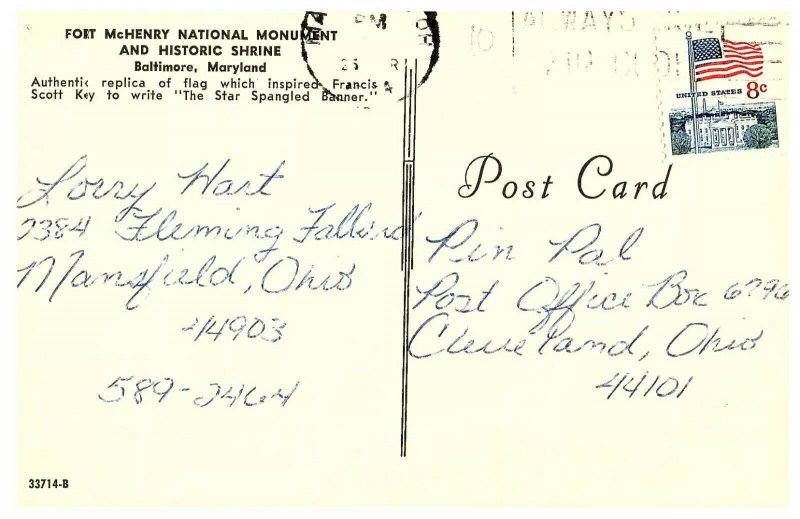 FORT McHENRY NATIONAL MONUMENT
AND HISTORIC SHRINE
Baltimore, Maryland
Authentic replica of flag which inspired Francis
Scott Key to write "The Star Spangled Banner."
PM
25
10
ALWAYS
UNITED STATES 8c
Post Card
Lorry Hart
2384 Fleming Falls rd
Mansfield, Ohio
44903
589-2464
Pin Pal
Post Office Box 6796
Cleveland, Ohio
44101
33714-B